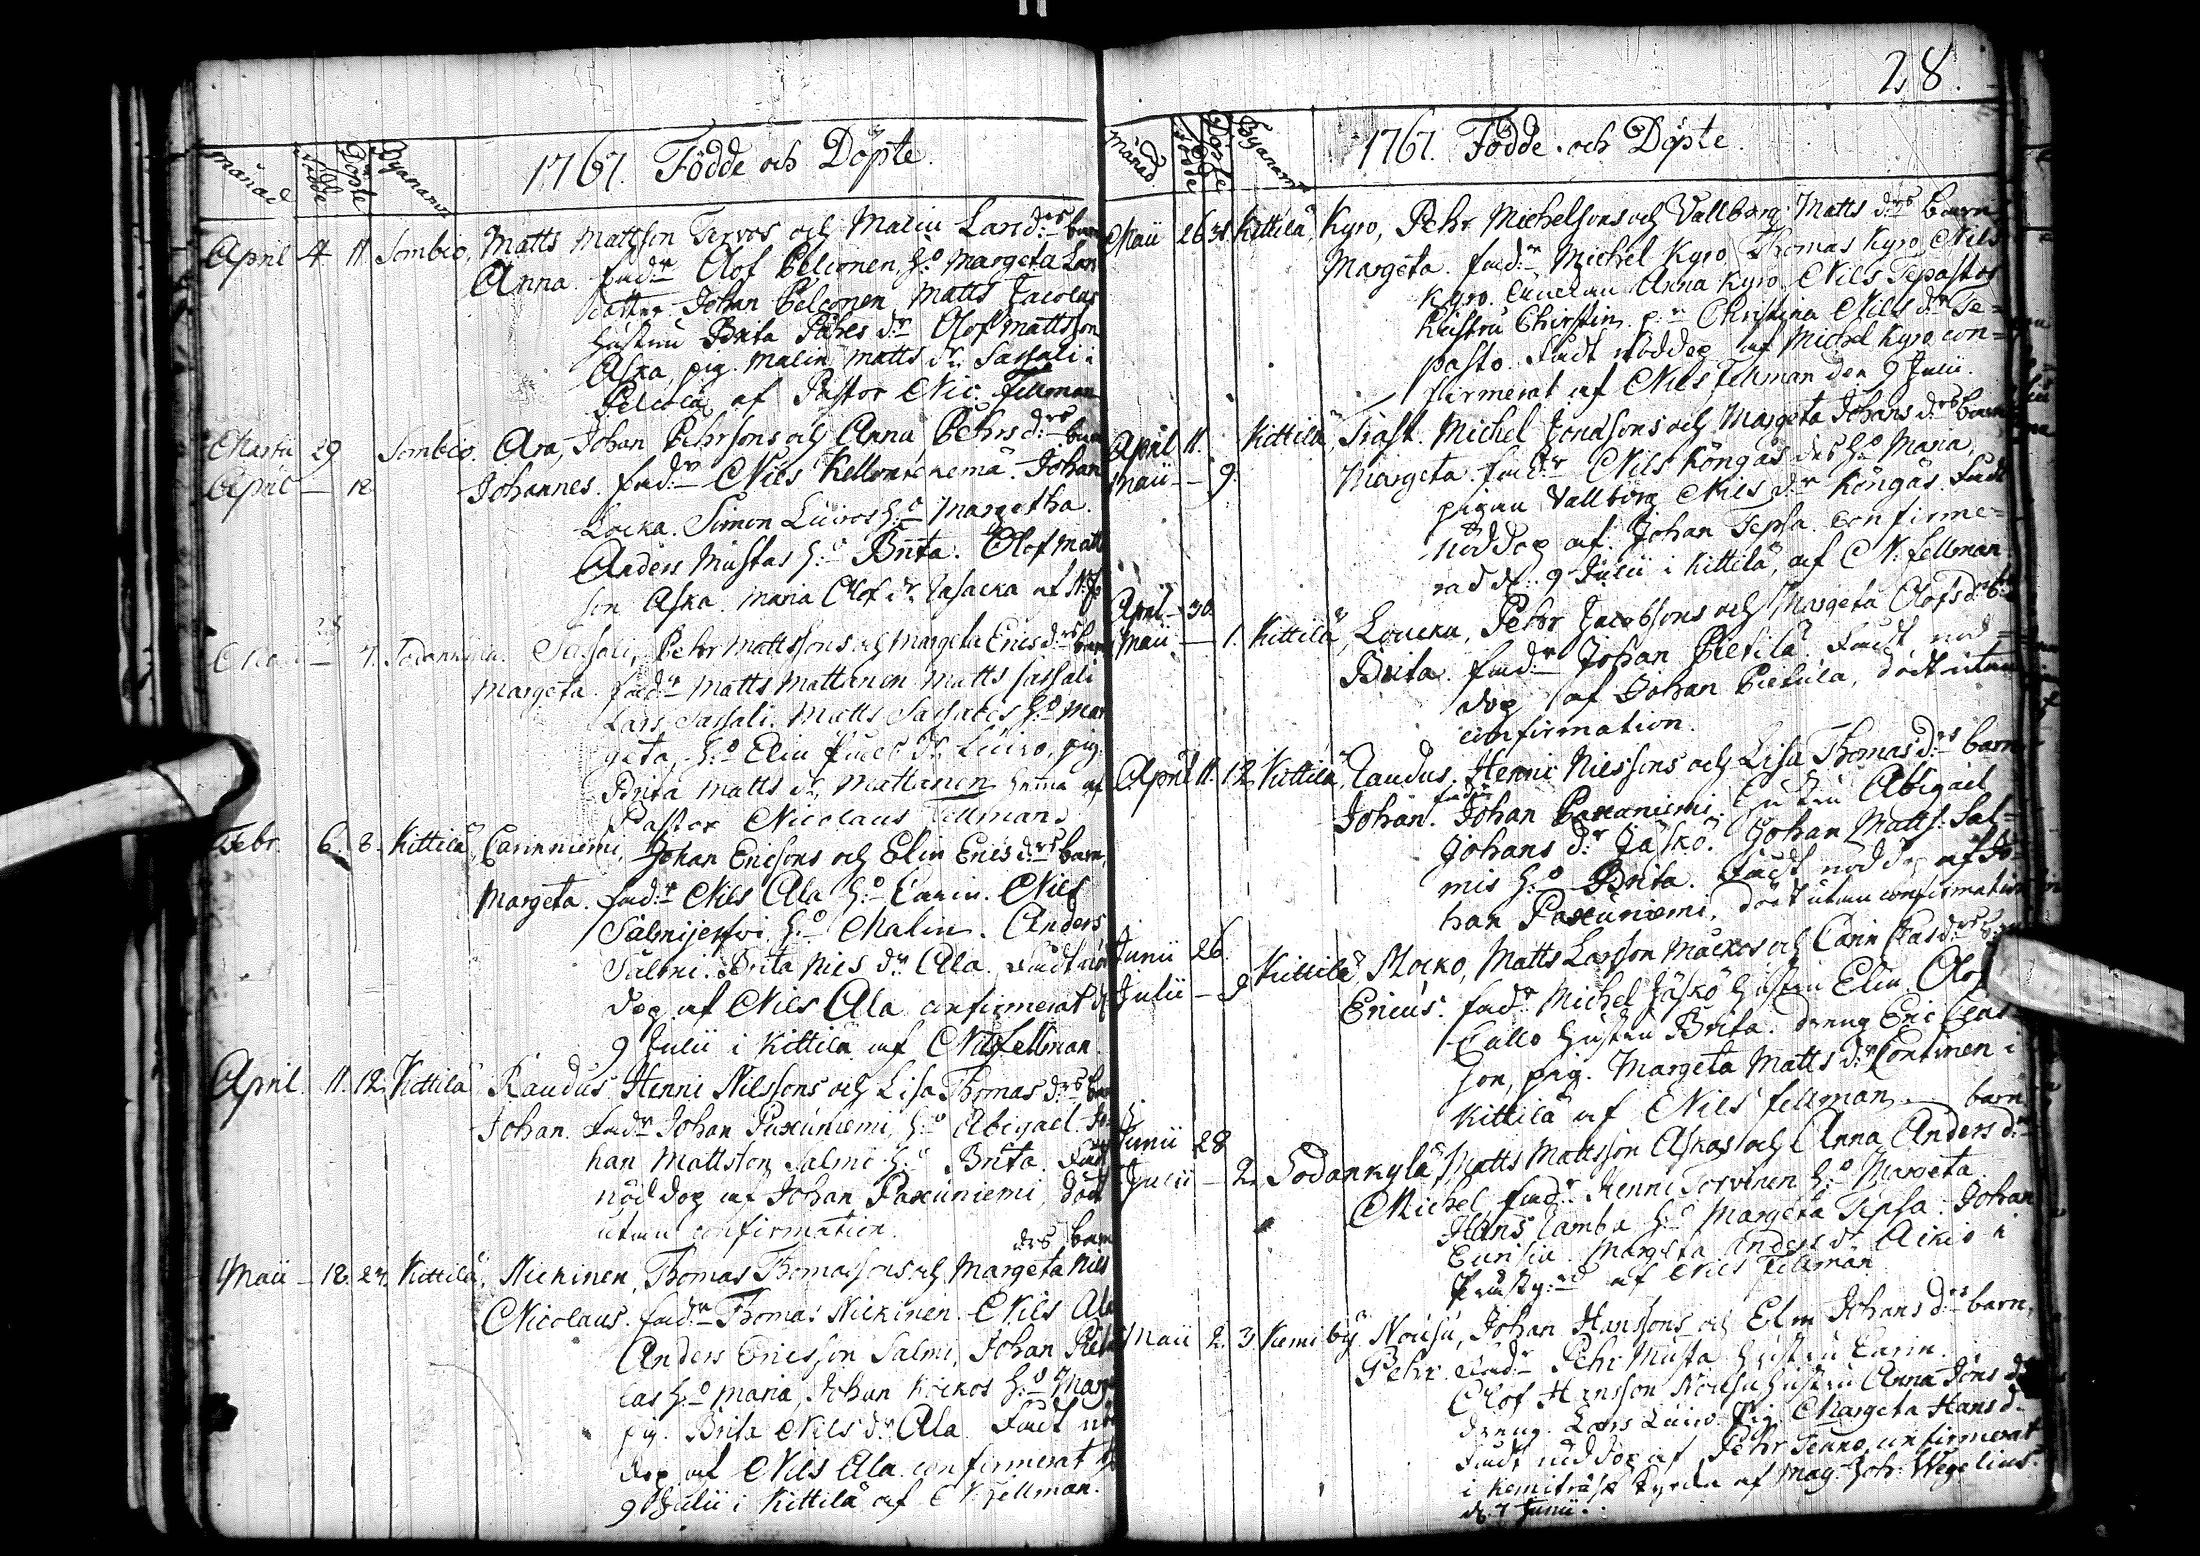 1767. Födde och Döpte.
månad Födde Döpte Byanamn
April 4 11 Sombio, Matts Mattsson Tervos och Malin Lars d:rs barn
Anna. fad:r Olof Pelconen, h:o Margeta Lars
dotter Johan Pelconen, Matts Jacolas
hustru Brita Pehrs d:r Olof Mattsson
Aska, pig. Malin Matts d:r Sassali i
Pelcola af Pastor Nic. Fellman
Martii 29 Sombio. Ara, Johan Pehrsons och Anna Pehrs d:rs barn
April — 12 Johannes. fad:r Nils Johan
Locka. Simon Luiros h:o Margetha.
Anders Mustas h:o Brita. Olof Matts
son Aska. Maria Olof d:r af N. f.
28
— 7. Sodankyla. Sassali, Pehr Mattssons och Margeta Erics d:rs barn
Margeta. fad:r Matts Mattanen Matts Sassali
Lars Sassali. Matts Sassalis h:o Mar
geta, h:o Elin d:r Luiro, pig.
Brita Matts d:r Mattanen hemma af
Pastor Nicolaus Fellman.
Febr. 6. 8. Kittilä, Carinniemi, Johan Ericsons och Elin Erics d:rs barn,
Margeta. fad:r Nils Ala h:o Carin. Nils
Salmijerfvi h:o Malin. Anders
Salmi. Brita Nils d:r Ala. Fadt nöd
dop af Nils Ala confirmerat d.
9 Julii i Kittilä af Nils Fellman.
April. 11. 12. Kittilä Raudus Henric Nilssons och Lisa Thomas d:rs barn
Johan. fad:r Johan Paxuniemi, h:o Abigael Jo
han Mattsson Salmi h:o Brita. Fadt
nöddop af Johan Paxuniemi, dödt
utan confirmation.
d:rs barn
Maii — 18. 24. Kittilä, Nickinen, Thomas Thomassons och Margeta Nils
Nicolaus. fad:r Thomas Nickinen. Nils Ala
Anders Ericsson Salmi, Johan Pieti
las h:o Maria, Johan Kockos h:o Marge
pig. Brita Nils d:r Ala. Fadt nöd
dop af Nils Ala confirmerat d.
9 Julii i Kittilä af N. Fellman.
28.
1767. Födde och Döpte.
månad Födde Döpte Byanamn
Maii 26 31. Kittilä, Kyro, Pehr Michelsons och Vallborg Matts d:rs barn
Margeta. fad:r Michel Kyro, Thomas Kyro, Nils
Kyro. Anna Kyro. Nils Tepastos
hustru Christin. p:n Christina Nils d:r Te=
pasto. Fadt nöddop af Michel Kyro con=
firmerat af Nils Fellman den 9 Julii.
April 11. Kittilä, Trast. Michel Jonassons och Margeta Johans d:rs barn
Maii — 9. Margeta. fad:r Nils Köngäs des h:o Maria,
pigan Vallborg Nils d:r Köngäs. Fadt
nöddop af Johan Tepsa. confirme=
rad d. 9 Julii i Kittilä, af N. Fellman
April — 30.
Maii — 1. Kittilä, Loucka, Pehr Jacobssons och Margeta Olofs d:rs b:n
Brita. fad:r Johan Pietilä. Fadt nöd=
dop af Johan Pietila, dödt utan
confirmation.
April 11. 12. Kittilä, Raudus. Henric Nielssons och Lisa Thomas d:rs barn
Johan. fad:r Johan Paxuniemi. hustru Abigael
Johans d:r Jäskö. Johan Matts: Sal=
mis h:o Brita. Fadt nöddop af Jo=
han Paxuniemi, dödt utan confirmation
Junii 26.
Julii — 9. Kittilä Mocko, Matts Larsson Mäckos och Carin Clas d:rs barn
Ericus. fad:r Michel Jäskö hustru Elin. Olof
Callo hustru Brita. dreng Eric Clas
son, pig. Margeta Matts d:r Continen i
Kittilä af Nils Fellman. barn
Junii 28
Julii — 2. Sodankylä, Matts Mattsson Askas och Anna Anders d:rs
Michel, fad:r Henric Torvinen h:o Margeta
Hans Camba h:o Margeta Tepsa. Johan
Margeta Anders d:r Aikio i
af Nils Fellman
Maii 2. 3. Kemi by. Nousu, Johan Hanssons och Elin Johans d:rs barn,
Pehr. fad:r Pehr Musta hustru Carin.
Olof Hansson Nousu hustru Anna Jöns d:r
dreng. Lars Luiro. Pig. Margeta Hans d.
Fadt nöddop af Pehr Tenno, confirmerat
i Kemiträsk Kyrka af Mag. Joh: Wegelius.
d. 7 Junii.